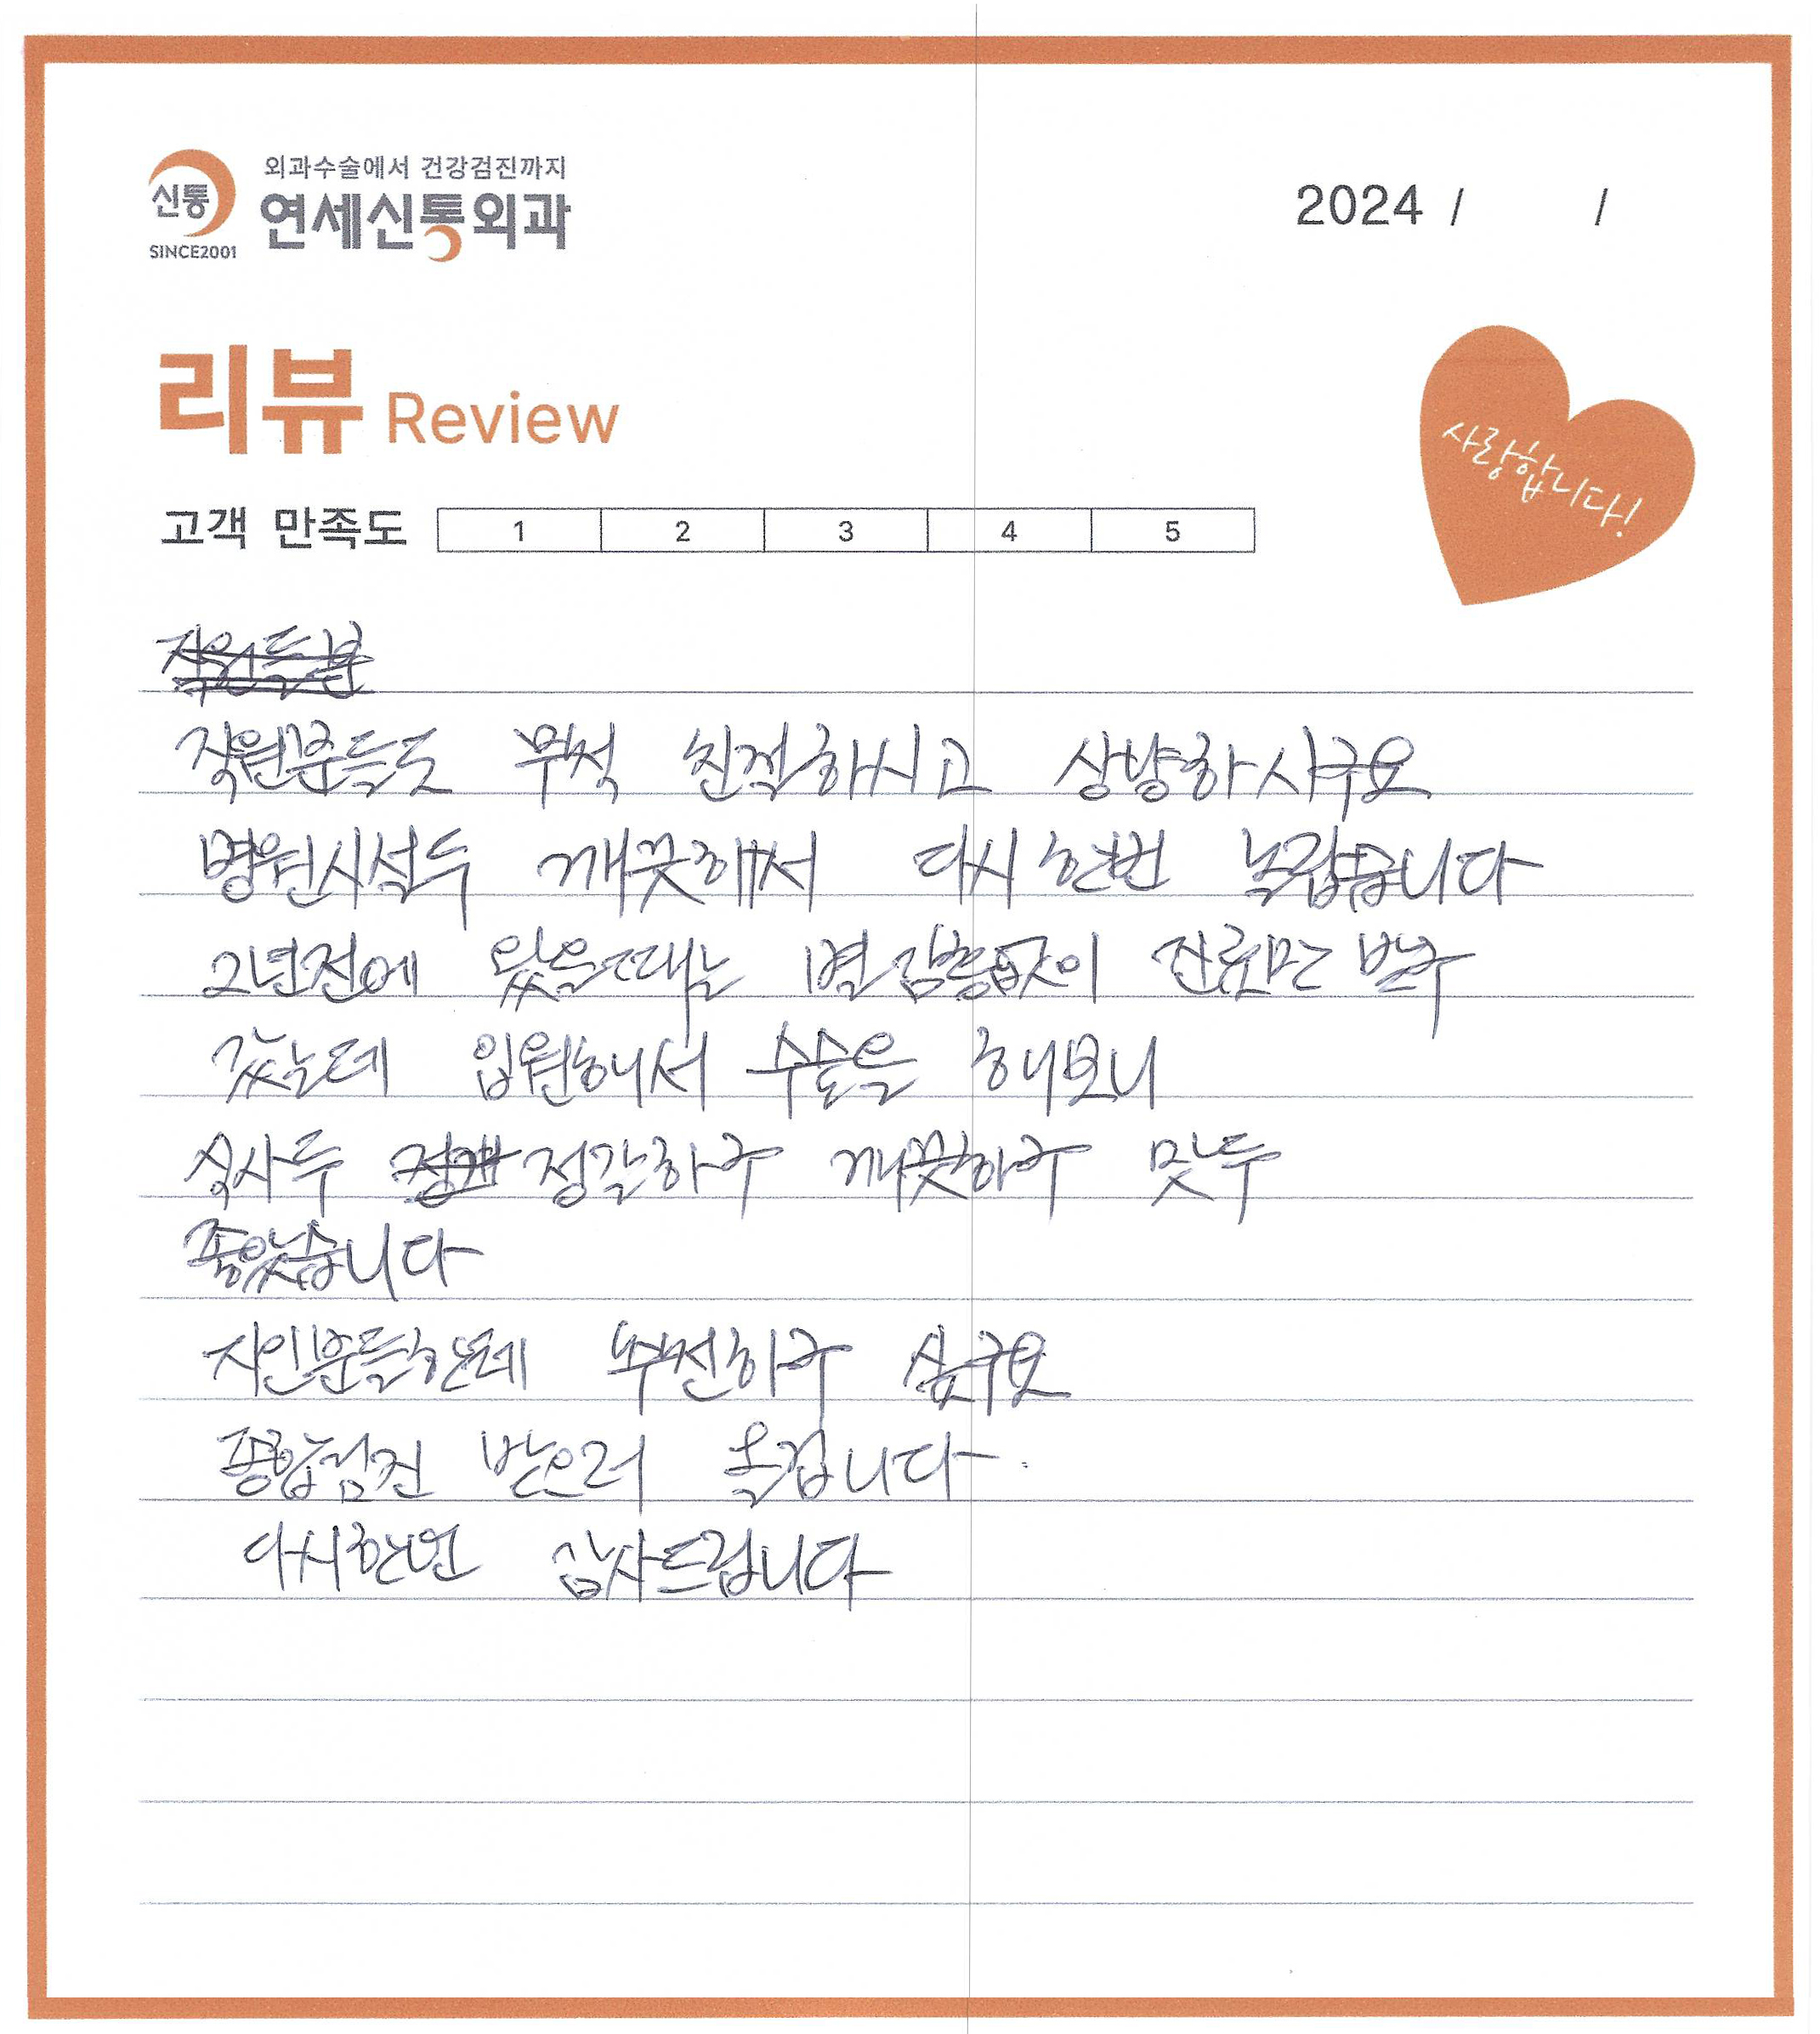 외과수술에서 건강검진까지
신통
연세신통외과
SINCE2001
2024 / /
리뷰 Review
사랑합니다!
고객 만족도 1 2 3 4 5
직원들분
직원분들도 무척 친절하시고 상냥하시구요
병원시설두 깨끗해서 다시 한번 놀랍습니다
2년전에 왔을때는 별 감흥없이 진료만 받구
갔는데 입원해서 수술을 해보니
식사두 정갈하구 깨끗하구 맛두
좋았습니다
지인분들한테 추천하구 싶구요
종합검진 받으러 올겁니다.
다시한번 감사드립니다